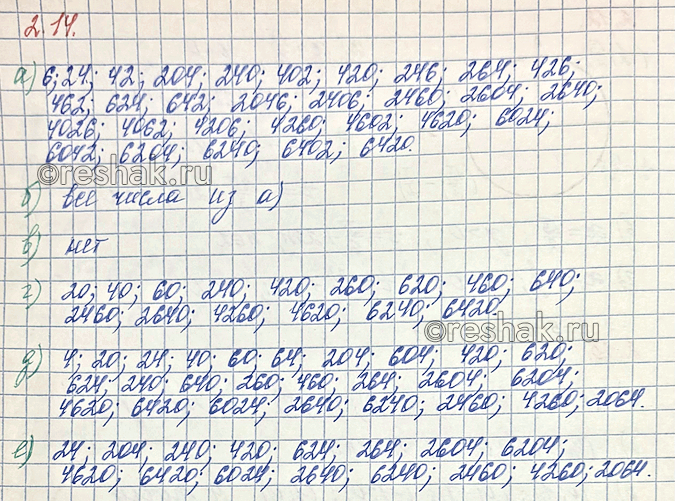 2.14.
а) 6; 24; 42; 204; 240; 402; 420; 246; 264; 426;
462; 624; 642; 2046; 2406; 2460; 2604; 2640;
4026; 4062; 4206; 4260; 4602; 4620; 6024;
6042; 6204; 6240; 6402; 6420.
©reshak.ru
б) все числа из а)
в) нет
г) 20; 40; 60; 240; 420; 260; 620; 460; 640;
2460; 2640; 4260; 4620; 6240; 6420.
©reshak.ru
д) 4; 20; 24; 40; 60; 64; 204; 604; 420; 620;
624; 240; 640; 260; 460; 264; 2604; 6204;
4620; 6420; 6024; 2640; 6240; 2460; 4260; 2064.
е) 24; 204; 240; 420; 624; 264; 2604; 6204;
4620; 6420; 6024; 2640; 6240; 2460; 4260; 2064.